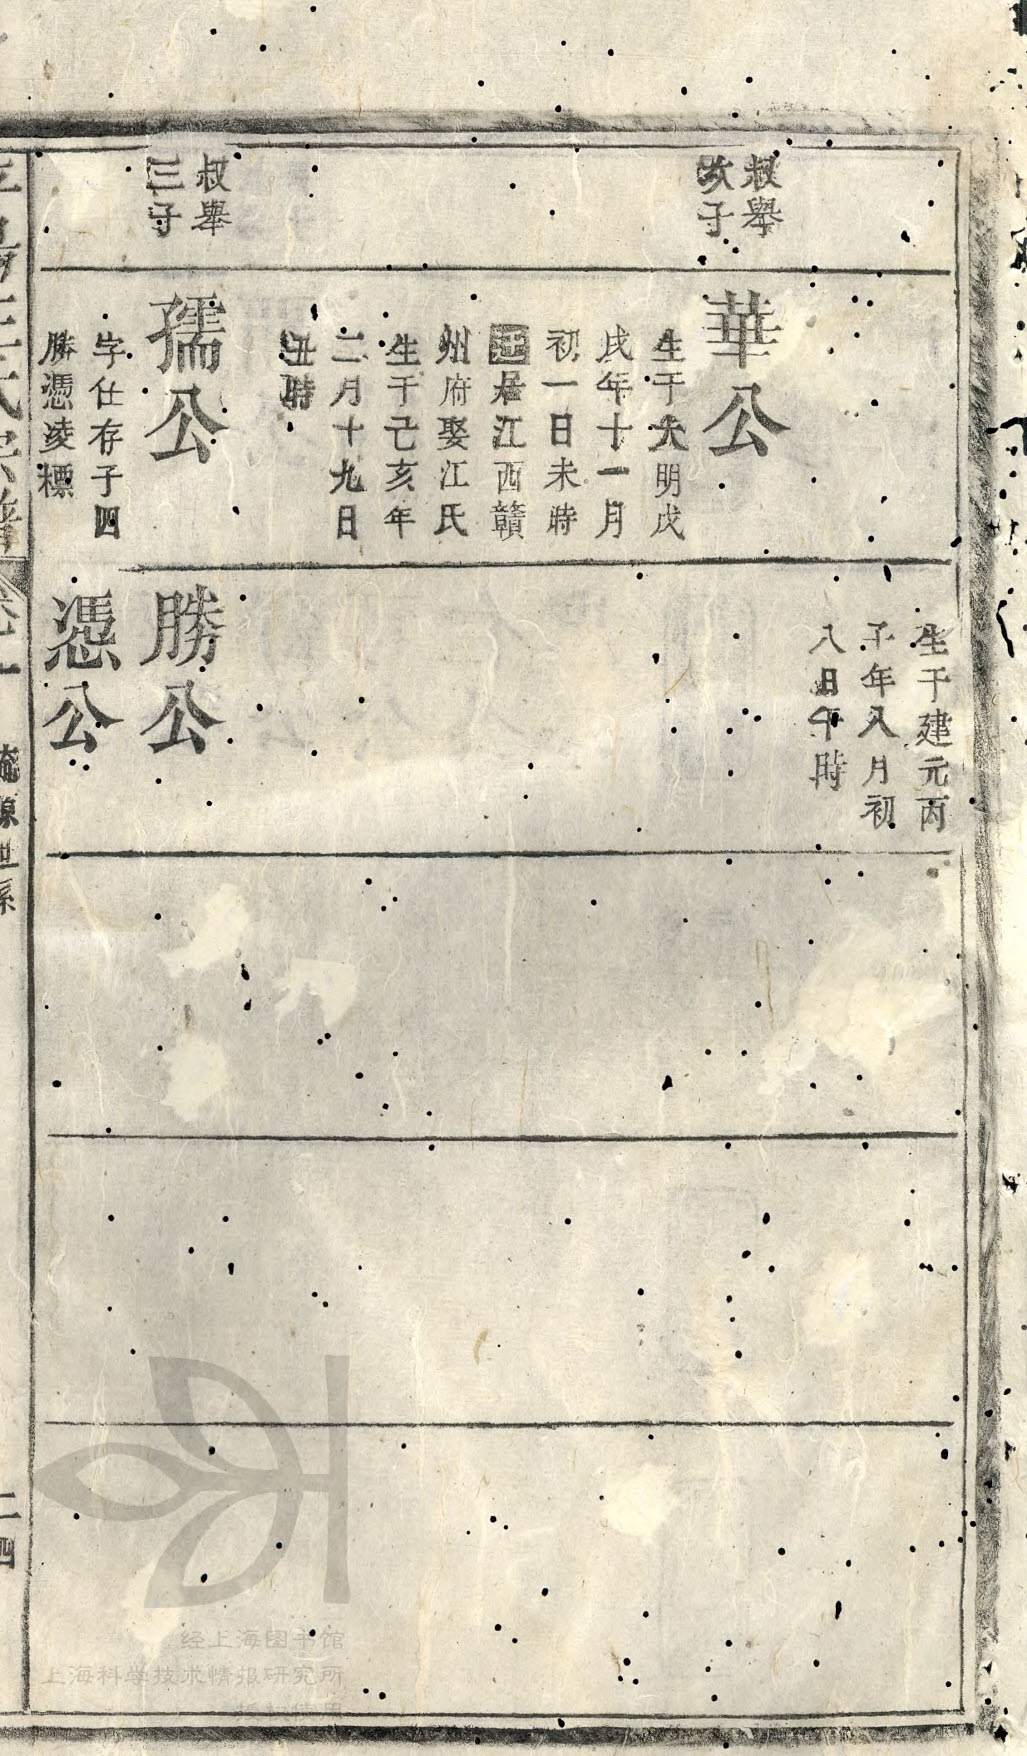 叔舉
次子
叔舉
三子
華公
生于大明戊
戌年十一月
初一日未時
居江西贛
州府娶江氏
生于己亥年
二月十九日
丑時
孺公
字仕存子四
勝憑凌標
生于建元丙
子年八月初
八日午時
勝公
憑公
流源世系
二四
经上海图书馆
上海科学技术情报研究所